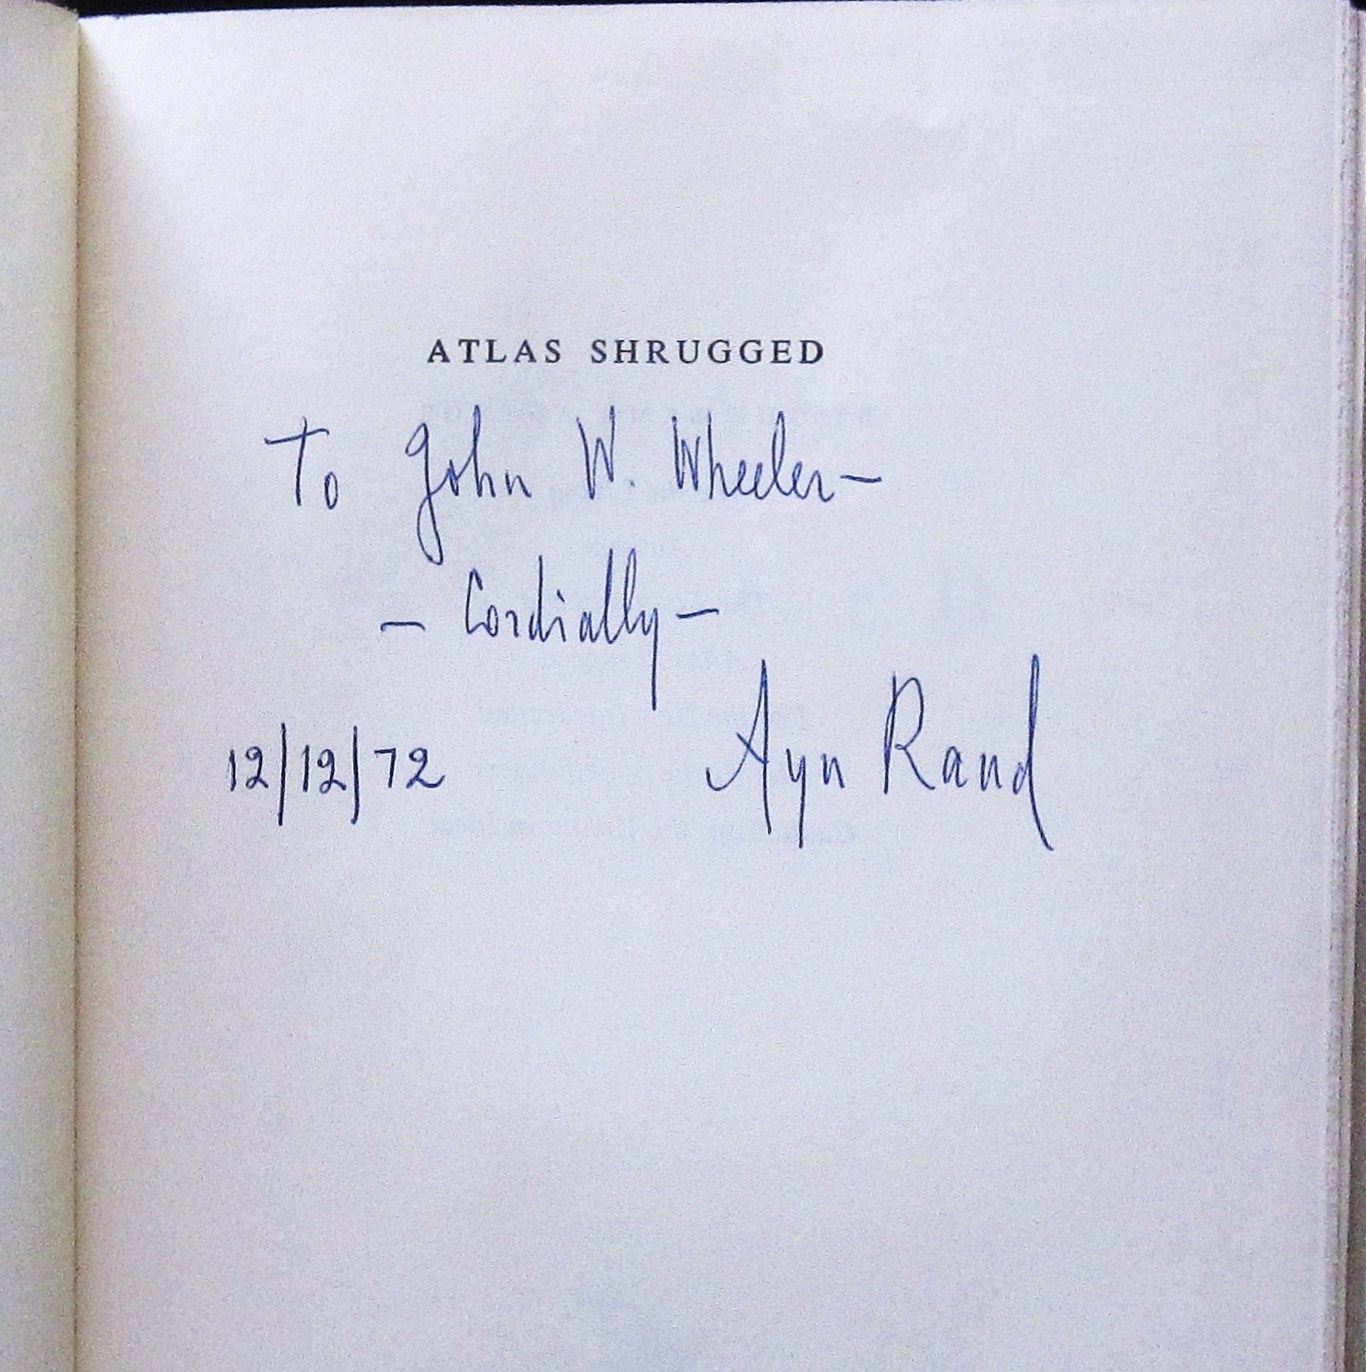 ATLAS SHRUGGED
To John W. Wheeler—
— Cordially —
12/12/72 Ayn Rand